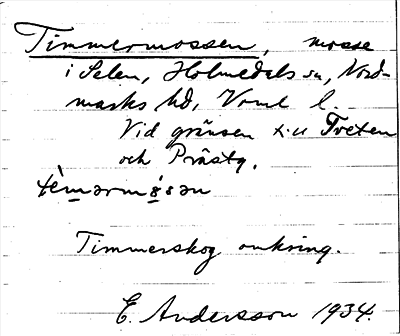 Timmermossen, mosse
i Selen, Holmedals sn, Nord-
marks hd, Vrml l.
Vid gränsen t. ll Tveten
och Prästg.
tèmərmósən
Timmerskog omkring.
E. Andersson 1934.